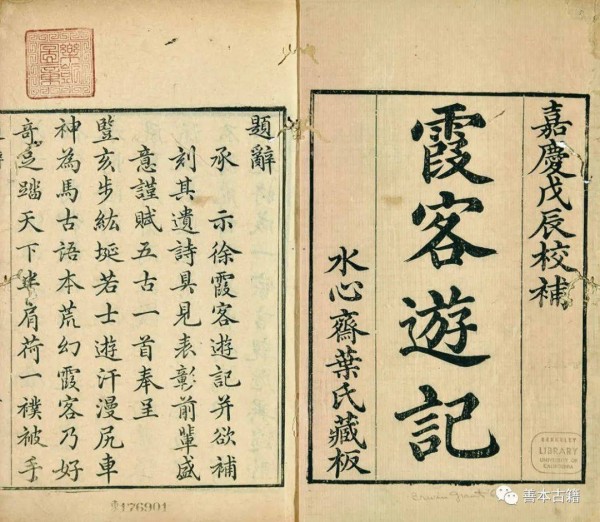 嘉慶戊辰校補
霞客遊記
水心齋葉氏藏板
題辭
承 示徐霞客遊記并欲補
刻其遺詩具見表彰前輩盛
意謹賦五古一首奉呈
豎亥步紘埏若士遊汗漫尻車
神為馬古語本荒幻霞客乃好
奇足踏天下半肩荷一襆被手
176901
BERKELEY
LIBRARY
UNIVERSITY OF
CALIFORNIA
善本古籍